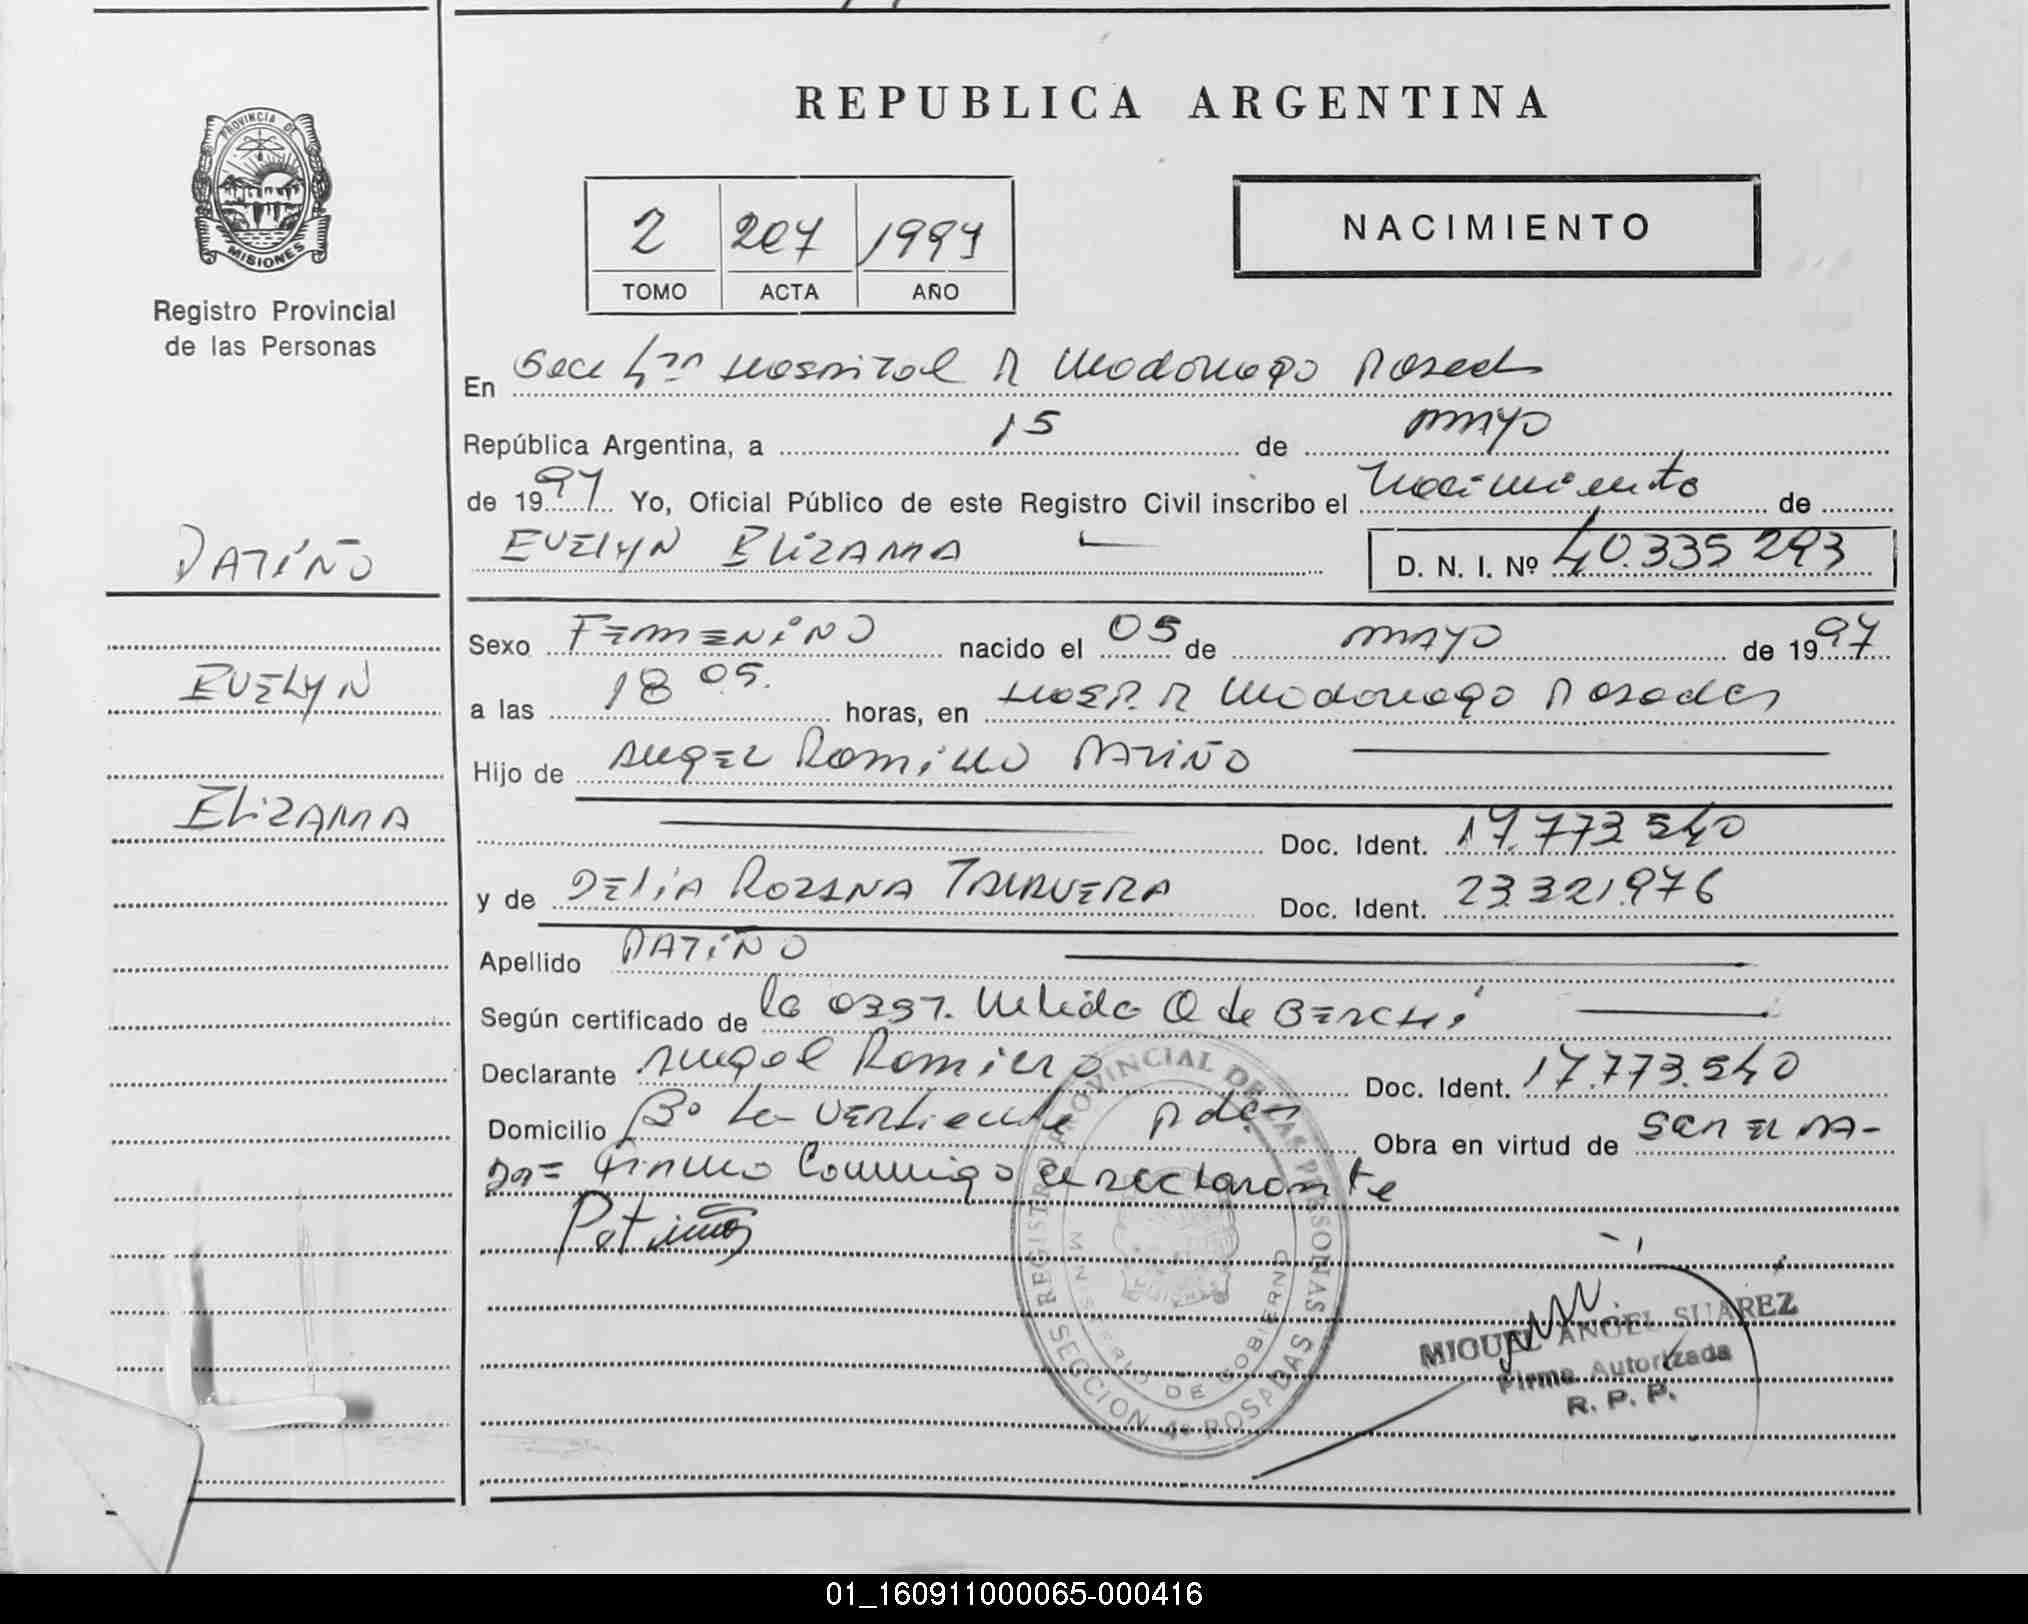 REPUBLICA ARGENTINA
PROVINCIA DE
MISIONES
Registro Provincial
de las Personas
2 207 1997
TOMO ACTA AÑO
NACIMIENTO
En Secc 4ta Hospital R Madariaga Posadas
República Argentina, a 15 de mayo
de 1997 Yo, Oficial Público de este Registro Civil inscribo el Nacimiento de
EVELYN ELIZAMA D. N. I. Nº 40.335 293
PATIÑO
EVELYN
ELIZAMA
Sexo FEMENINO nacido el 05 de mayo de 1997
a las 18 05. horas, en HOSP. R Madariaga Posadas
Hijo de ANGEL RAMIRO PATIÑO
Doc. Ident. 17.773 540
y de DELIA ROZANA TALAVERA Doc. Ident. 23.321.976
Apellido PATIÑO
Según certificado de la OBST. Nelida O de
Declarante Angel Ramiro Doc. Ident. 17.773.540
Domicilio Bº La Vertiente Pdas Obra en virtud de SER EL PA-
DRE= Firmo Conmigo el declarante
Patiño
REGISTRO PROVINCIAL DE LAS PERSONAS
MINISTERIO DE GOBIERNO
SECCION 4º POSADAS
MIGUEL ANGEL SUAREZ
Firma Autorizada
R. P. P.
01_160911000065-000416